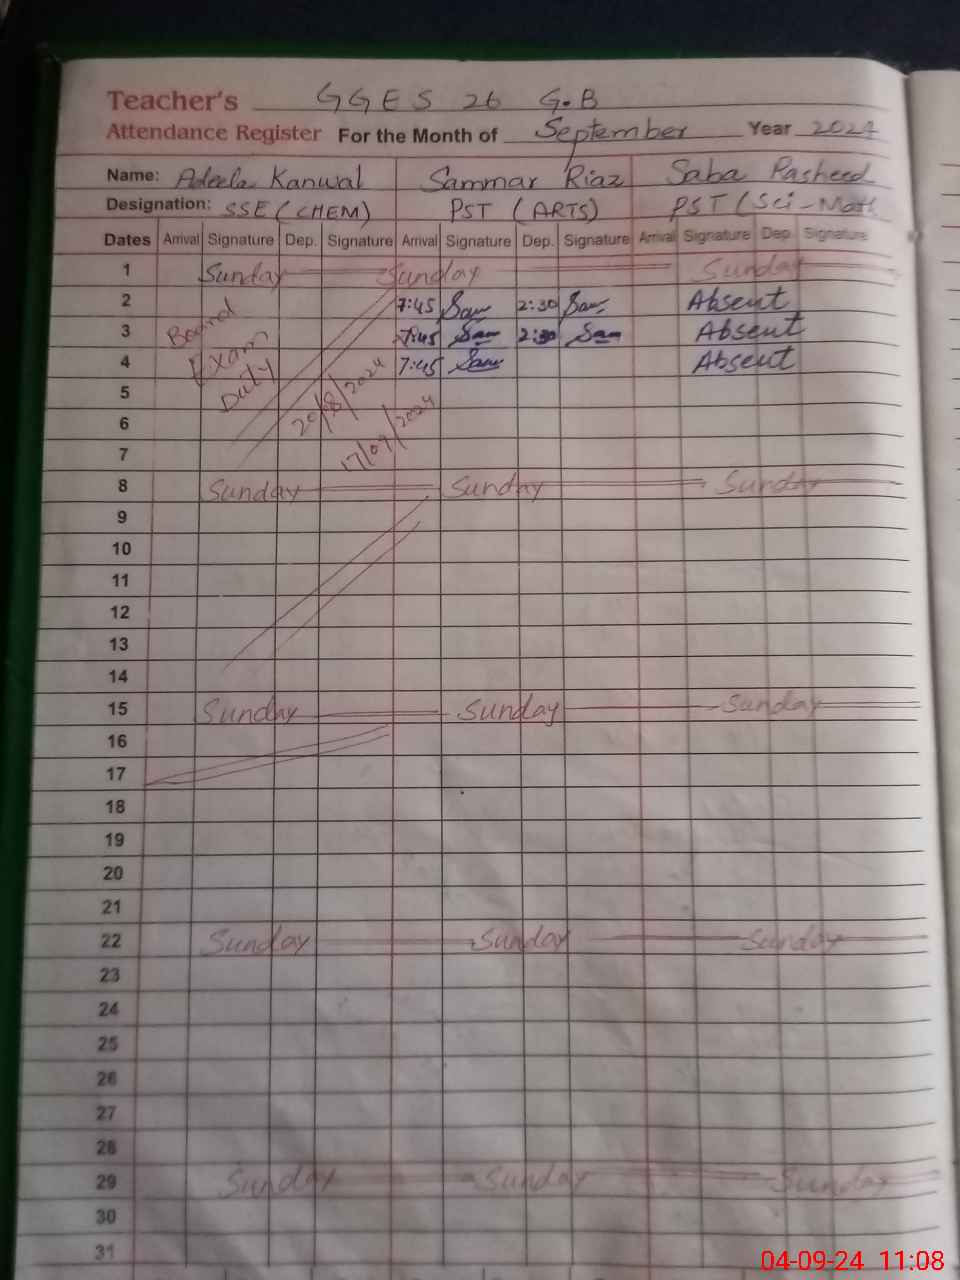 Teacher's GGES 26 G.B
Attendance Register For the Month of September Year 2024
Name: Adeela Kanwal Sammar Riaz Saba Rasheed
Designation: SSE (CHEM) PST (ARTS) PST (Sci-Math
Dates Arrival Signature Dep. Signature Arrival Signature Dep. Signature Arrival Signature Dep. Signature
1 Sunday Sunday Sunday
2 Board 7:45 Sam 2:30 Sam Absent
3 Exam 7:45 Sam 2:30 Sam Absent
4 Duty 7:45 Sam Absent
5 20/8/2024
6
7 17/09/2024
8 Sunday Sunday Sunday
9
10
11
12
13
14
15 Sunday Sunday Sunday
16
17
18
19
20
21
22 Sunday Sunday Sunday
23
24
25
26
27
28
29 Sunday Sunday Sunday
30
31
04-09-24 11:08